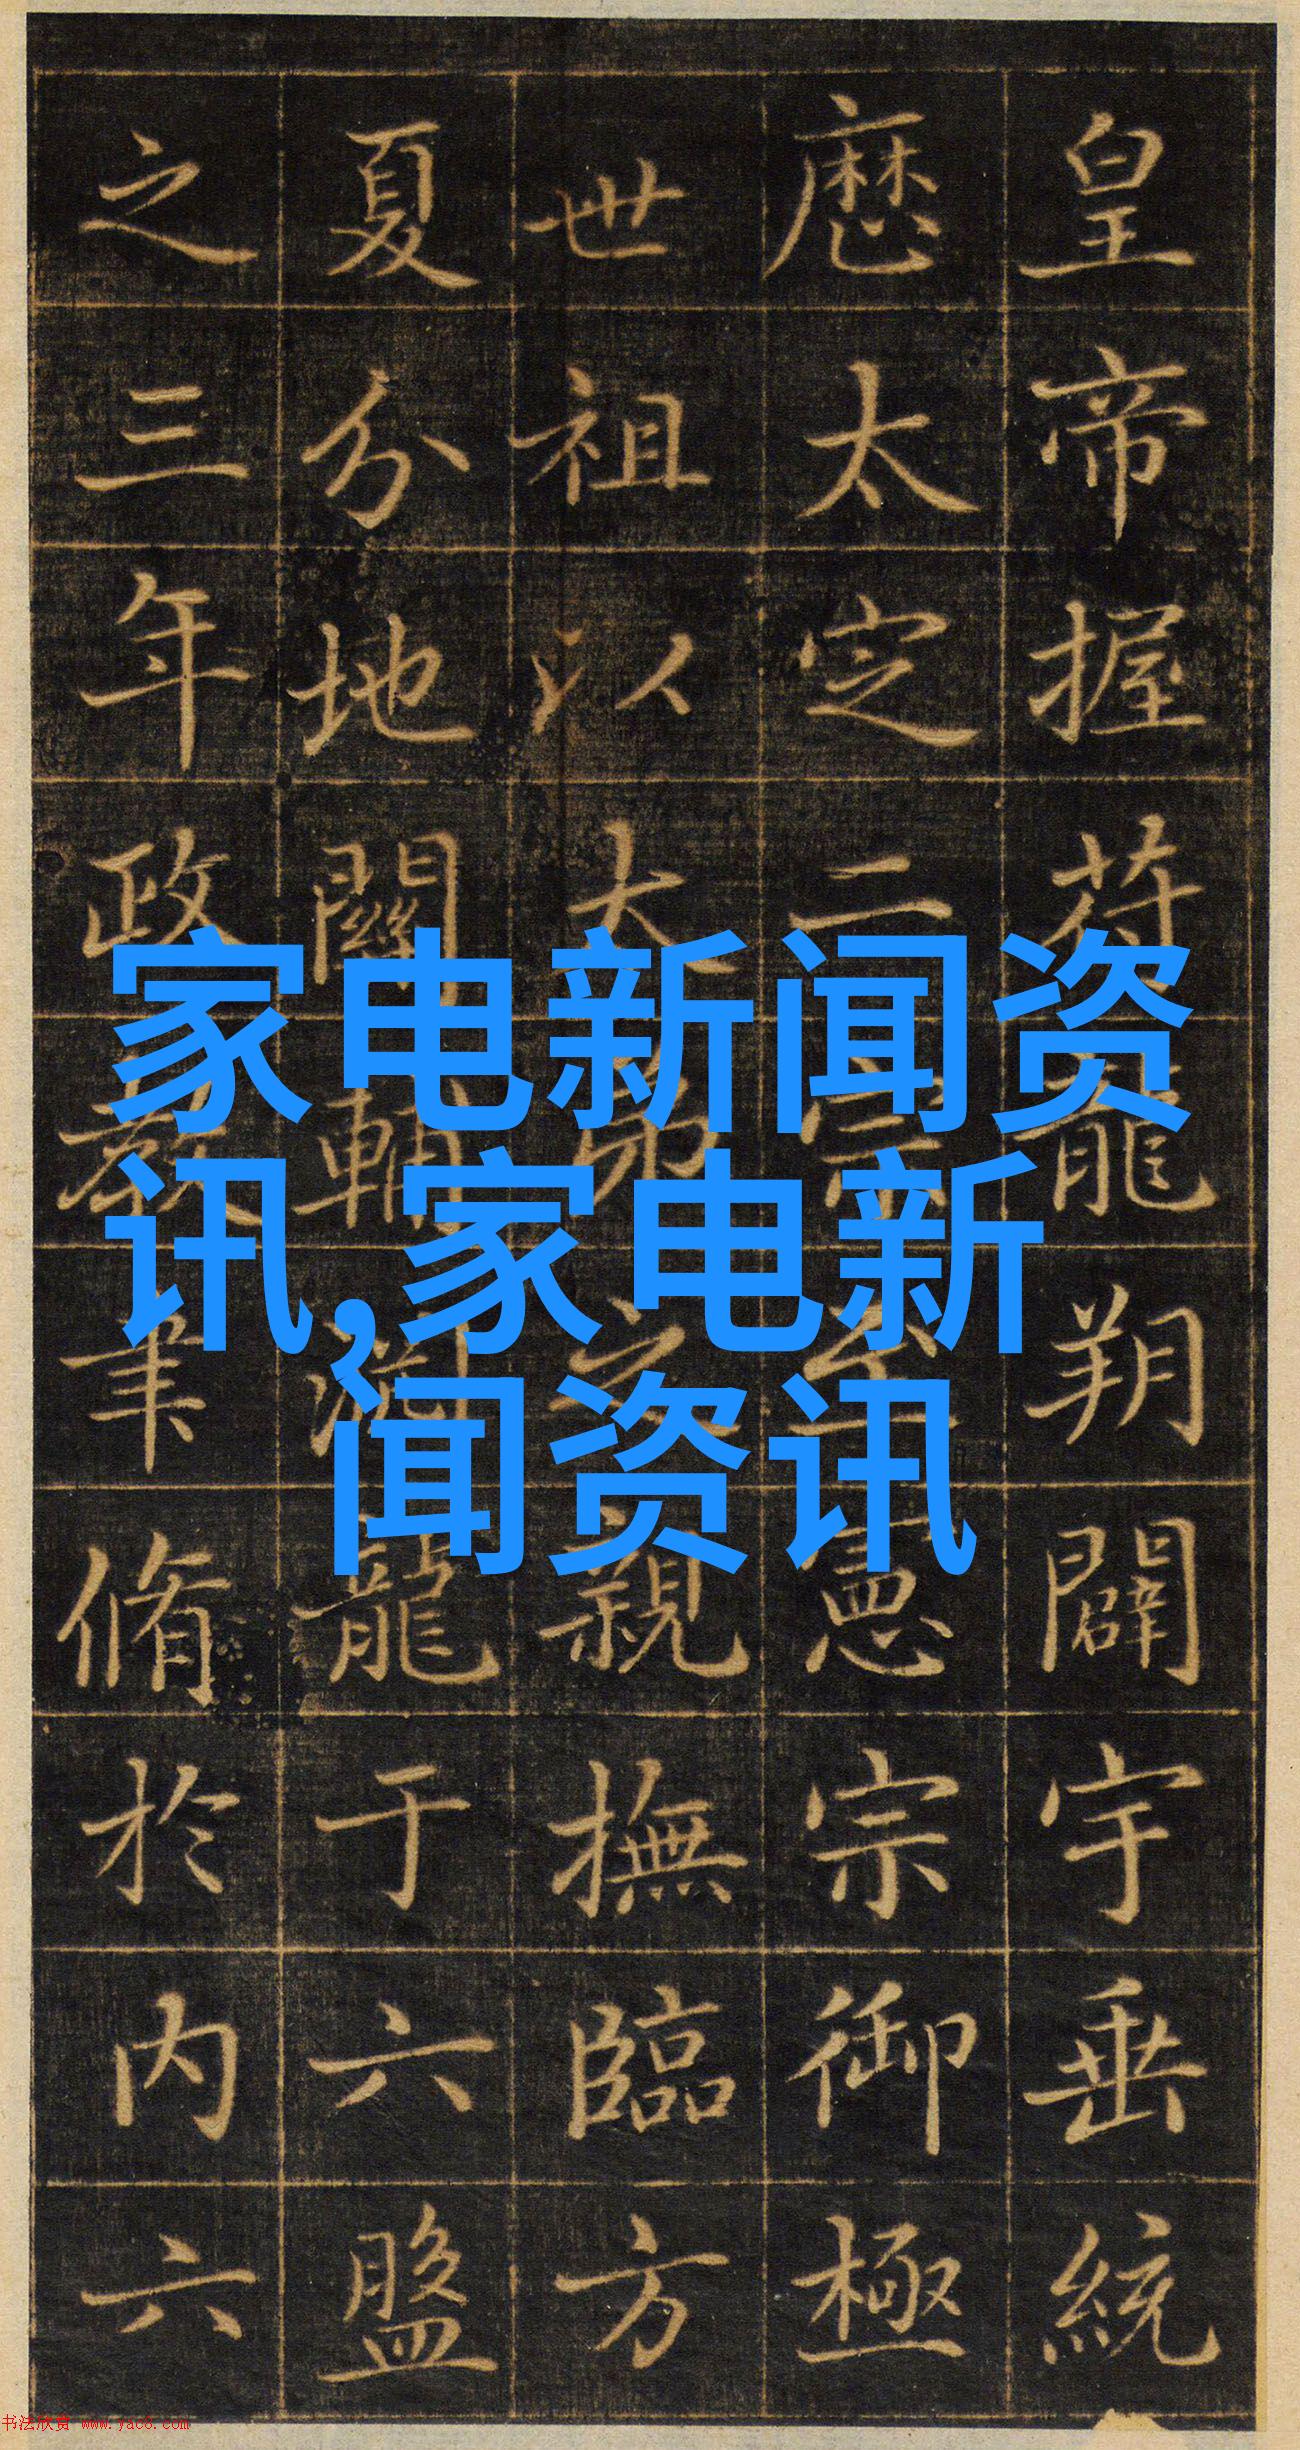 皇帝握符龍朔闢宇垂統
歴太定二宗至憲宗御極
世祖以太弟之親撫臨方
夏分地關輔龍于六盤
之三年政教聿脩於内六
家电新闻资
讯,家电新
闻资讯
书法欣赏 www.yac8.com